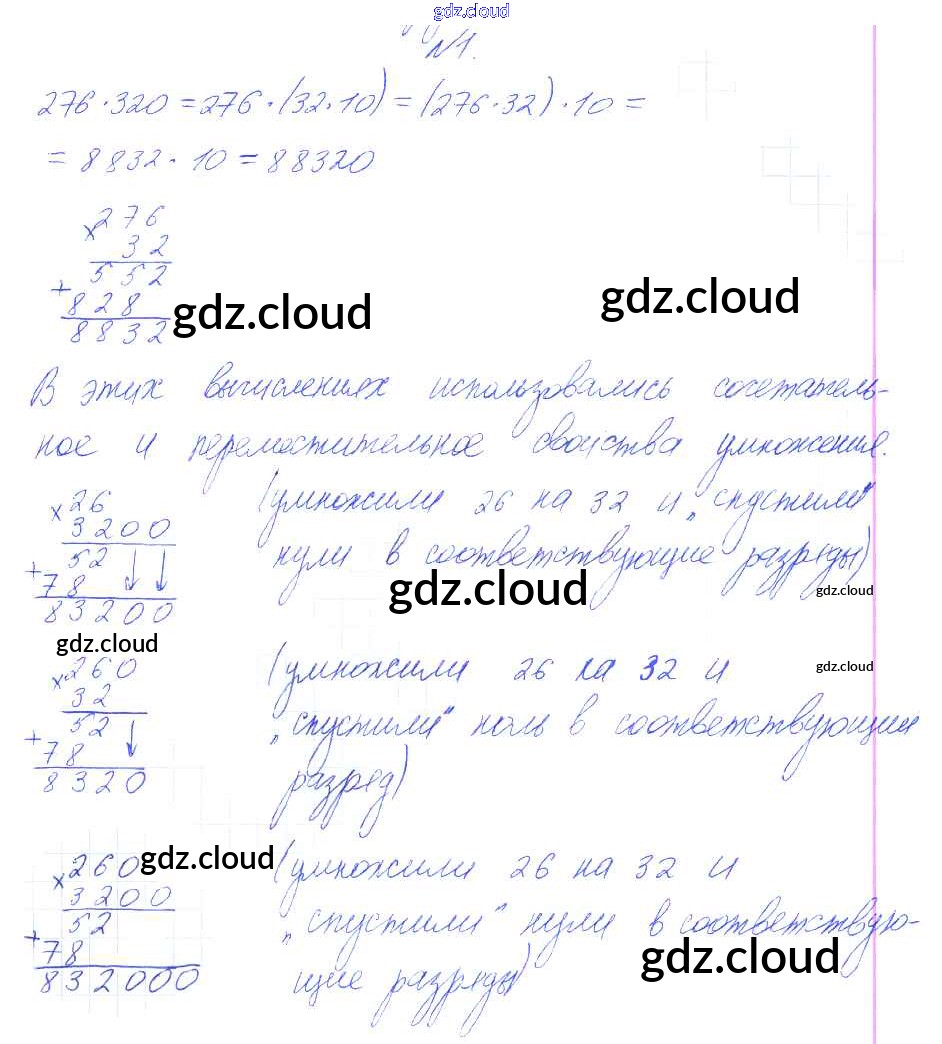 gdz.cloud
№1.
276 · 320 = 276 · (32 · 10) = (276 · 32) · 10 =
= 8832 · 10 = 88320
× 276
32
+ 552
828
8832
gdz.cloud
gdz.cloud
В этих вычислениях использовались сочетатель-
ное и переместительное свойства умножения.
× 26
3200
+ 52
78
83200
(умножили 26 на 32 и „спустили"
нули в соответствующие разряды)
gdz.cloud
gdz.cloud
gdz.cloud
× 260
32
+ 52
78
8320
(умножили 26 на 32 и
„спустили" ноль в соответствующий
разряд)
gdz.cloud
gdz.cloud
× 260
3200
+ 52
78
832000
(умножили 26 на 32 и
„спустили" нули в соответствую-
щие разряды)
gdz.cloud